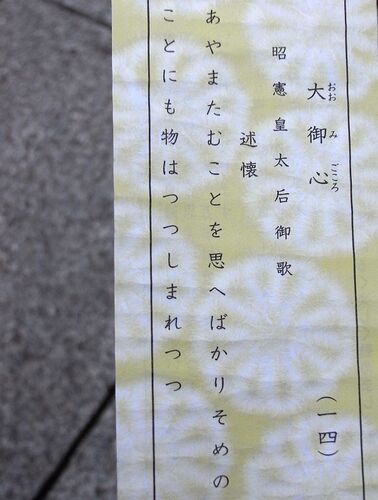 大御心 (一四)
おおみごころ
昭憲皇太后御歌
述懐
あやまたむことを思へばかりそめの
ことにも物はつつしまれつつ